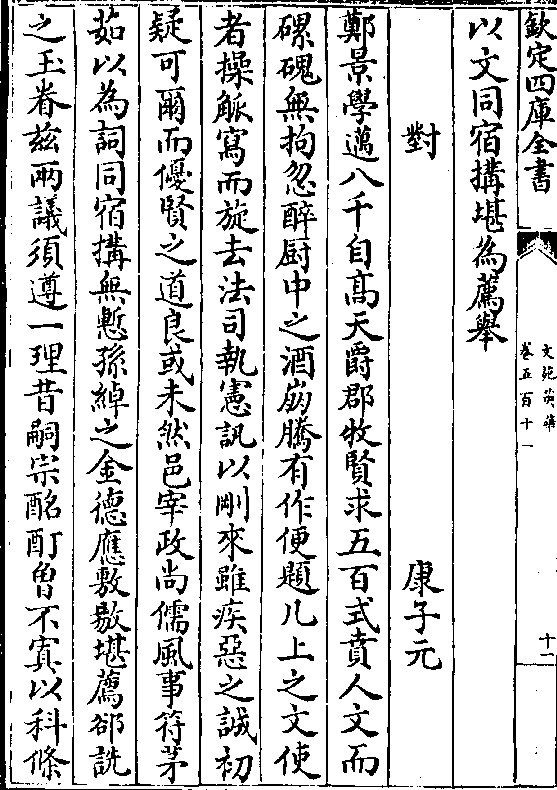 欽定四庫全書
文苑英華
卷五百十一
十一
以文同宿搆堪為薦舉
對
康子元
鄭景學邁八千自髙天爵郡牧賢求五百式賁人文而
磥磈無拘忽醉厨中之酒崩騰有作便題几上之文使
者操觚寫而旋去法司執憲訊以剛來雖疾惡之誠初
疑可爾而優賢之道良或未然邑宰政尚儒風事符茅
茹以為詞同宿搆無慙孫綽之金德應敷歇堪薦郤詵
之玉眷兹兩議須遵一理昔嗣宗酩酊曽不寘以科條